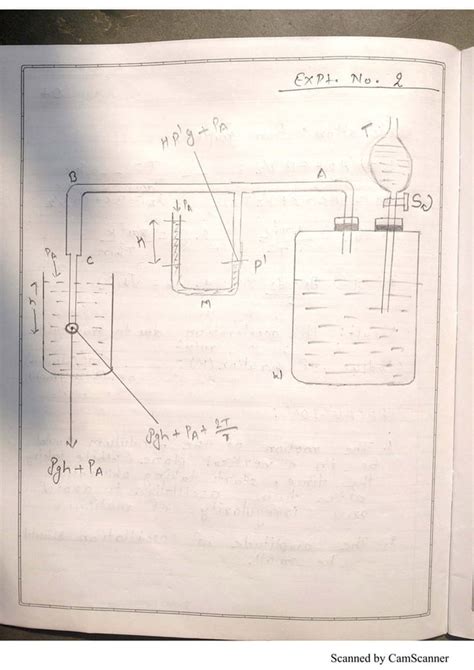 Expt. No. 2
T
Hρ'g + P_A
B
A
P_A
h
ρ'
C
P_A
M
h
W
ρgh + P_A + 2T/r
ρgh + P_A
Scanned by CamScanner